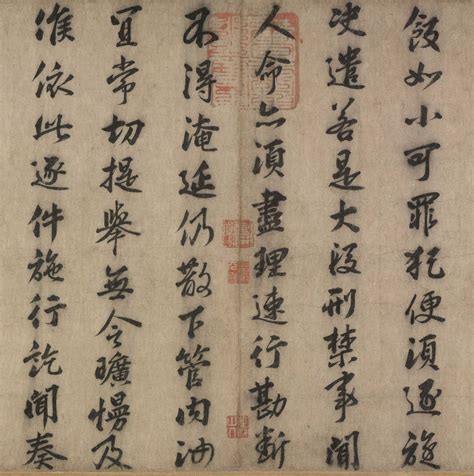 如小可罪犯便須逐旋
決遣若是大段刑禁事關
人命亦須盡理速行勘斷
不得淹延仍散下管內
宜常切提舉無令曠慢及
候依此逐件施行訖聞奏